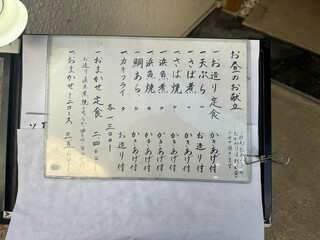 お昼のお献立
一お造り定食 かきあげ付
一天ぷら 〃 お造り付
一さば煮 〃 かきあげ付
一さば焼 〃 かきあげ付
一浜魚煮 〃 かきあげ付
一浜魚焼 〃 かきあげ付
一鯛あら 〃 かきあげ付
一カキフライ 〃 お造り付
各一三〇〇一
おまかせ定食 二四〇〇一
一おまかせミニコース 三五〇〇一